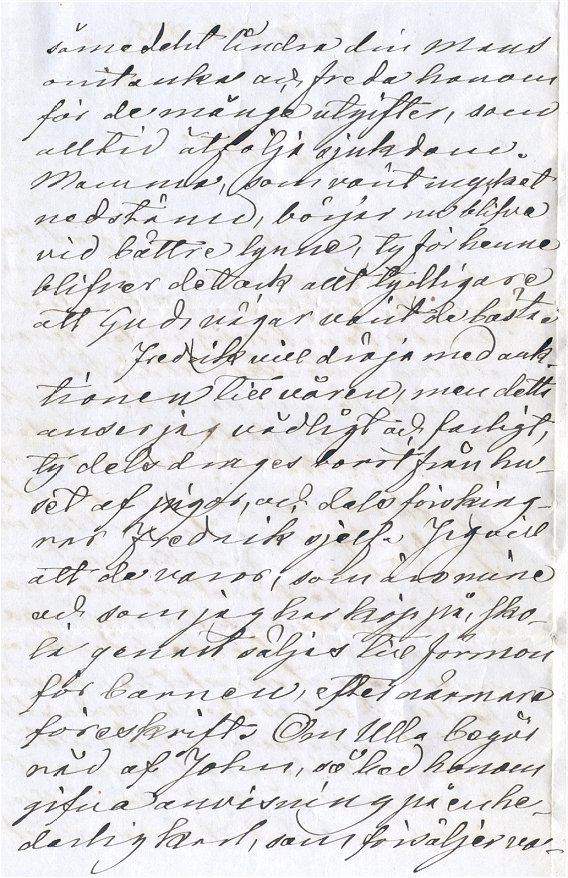 såmedelst lindra din Mans
omtanke och freda honom
för de många utgifter, som
alltid åtfölja sjukdom.
Mamma, som varit mycket
nedstämd, börjar nu blifva
vid bättre lynne, ty för henne
blifver det ock allt tydligare
att Guds vägar varit de bästa
Fredrik vill dröja med auk-
tionen till våren, men detta
anser jag vådligt och farligt,
ty dels drages bort från hu-
set af pigor, och dels försking-
rar Fredrik sjelf. Jag vill
att de varor, som äro mine
och som jag har köp på, sko-
la genast säljas till förmon
för barnen, efter närmare
föreskrift. Om Ulla begär
råd af John, så bed honom
gifva anvisning på en he-
derlig karl, som försäljer va-